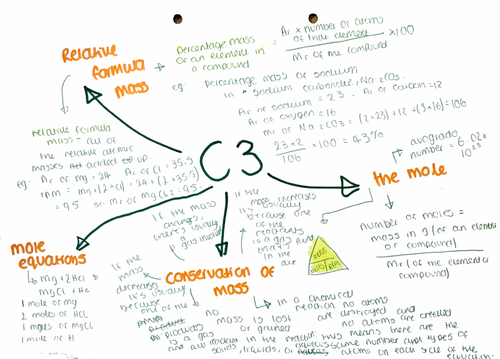 Relative
formula
mass
Percentage mass
or an element in
a compound
=
Ar x number of atoms
of that element
x100
Mr of the compound
eg: Percentage mass of sodium
in sodium carbonate, Na2CO3
Ar of sodium = 23, Ar of carbon = 12
Ar of oxygen = 16
Mr of Na2CO3 = (2x23)+12+(3x16)=106
23x2
106
x100 = 43%
relative formula
mass - all of
the relative atomic
masses added up.
eg: Ar of mg = 24 Ar of Cl = 35.5
C3
the mole
avogadro
number = 6.02x
10^23
number of moles =
mass in g (of an element
or compound)
Mr (of the element or
compound)
mole
equations
mg + 2HCl →
mgCl + H2
1 mole of mg
2 moles of HCl
1 moles of mgCl
1 mole of H
If the mass
changes,
there's usually
a gas made
If the
mass
decreases
it's usually
because
one of the
products
is a gas
If the
mass increases
it's usually
because one
of the
reactants
is a gas
found in
the air
Conservation of
mass
no mass is lost
or gained
In a chemical
reaction no atoms
are destroyed and
no atoms are created
this means there are the
same number and types of
atoms on each side of the